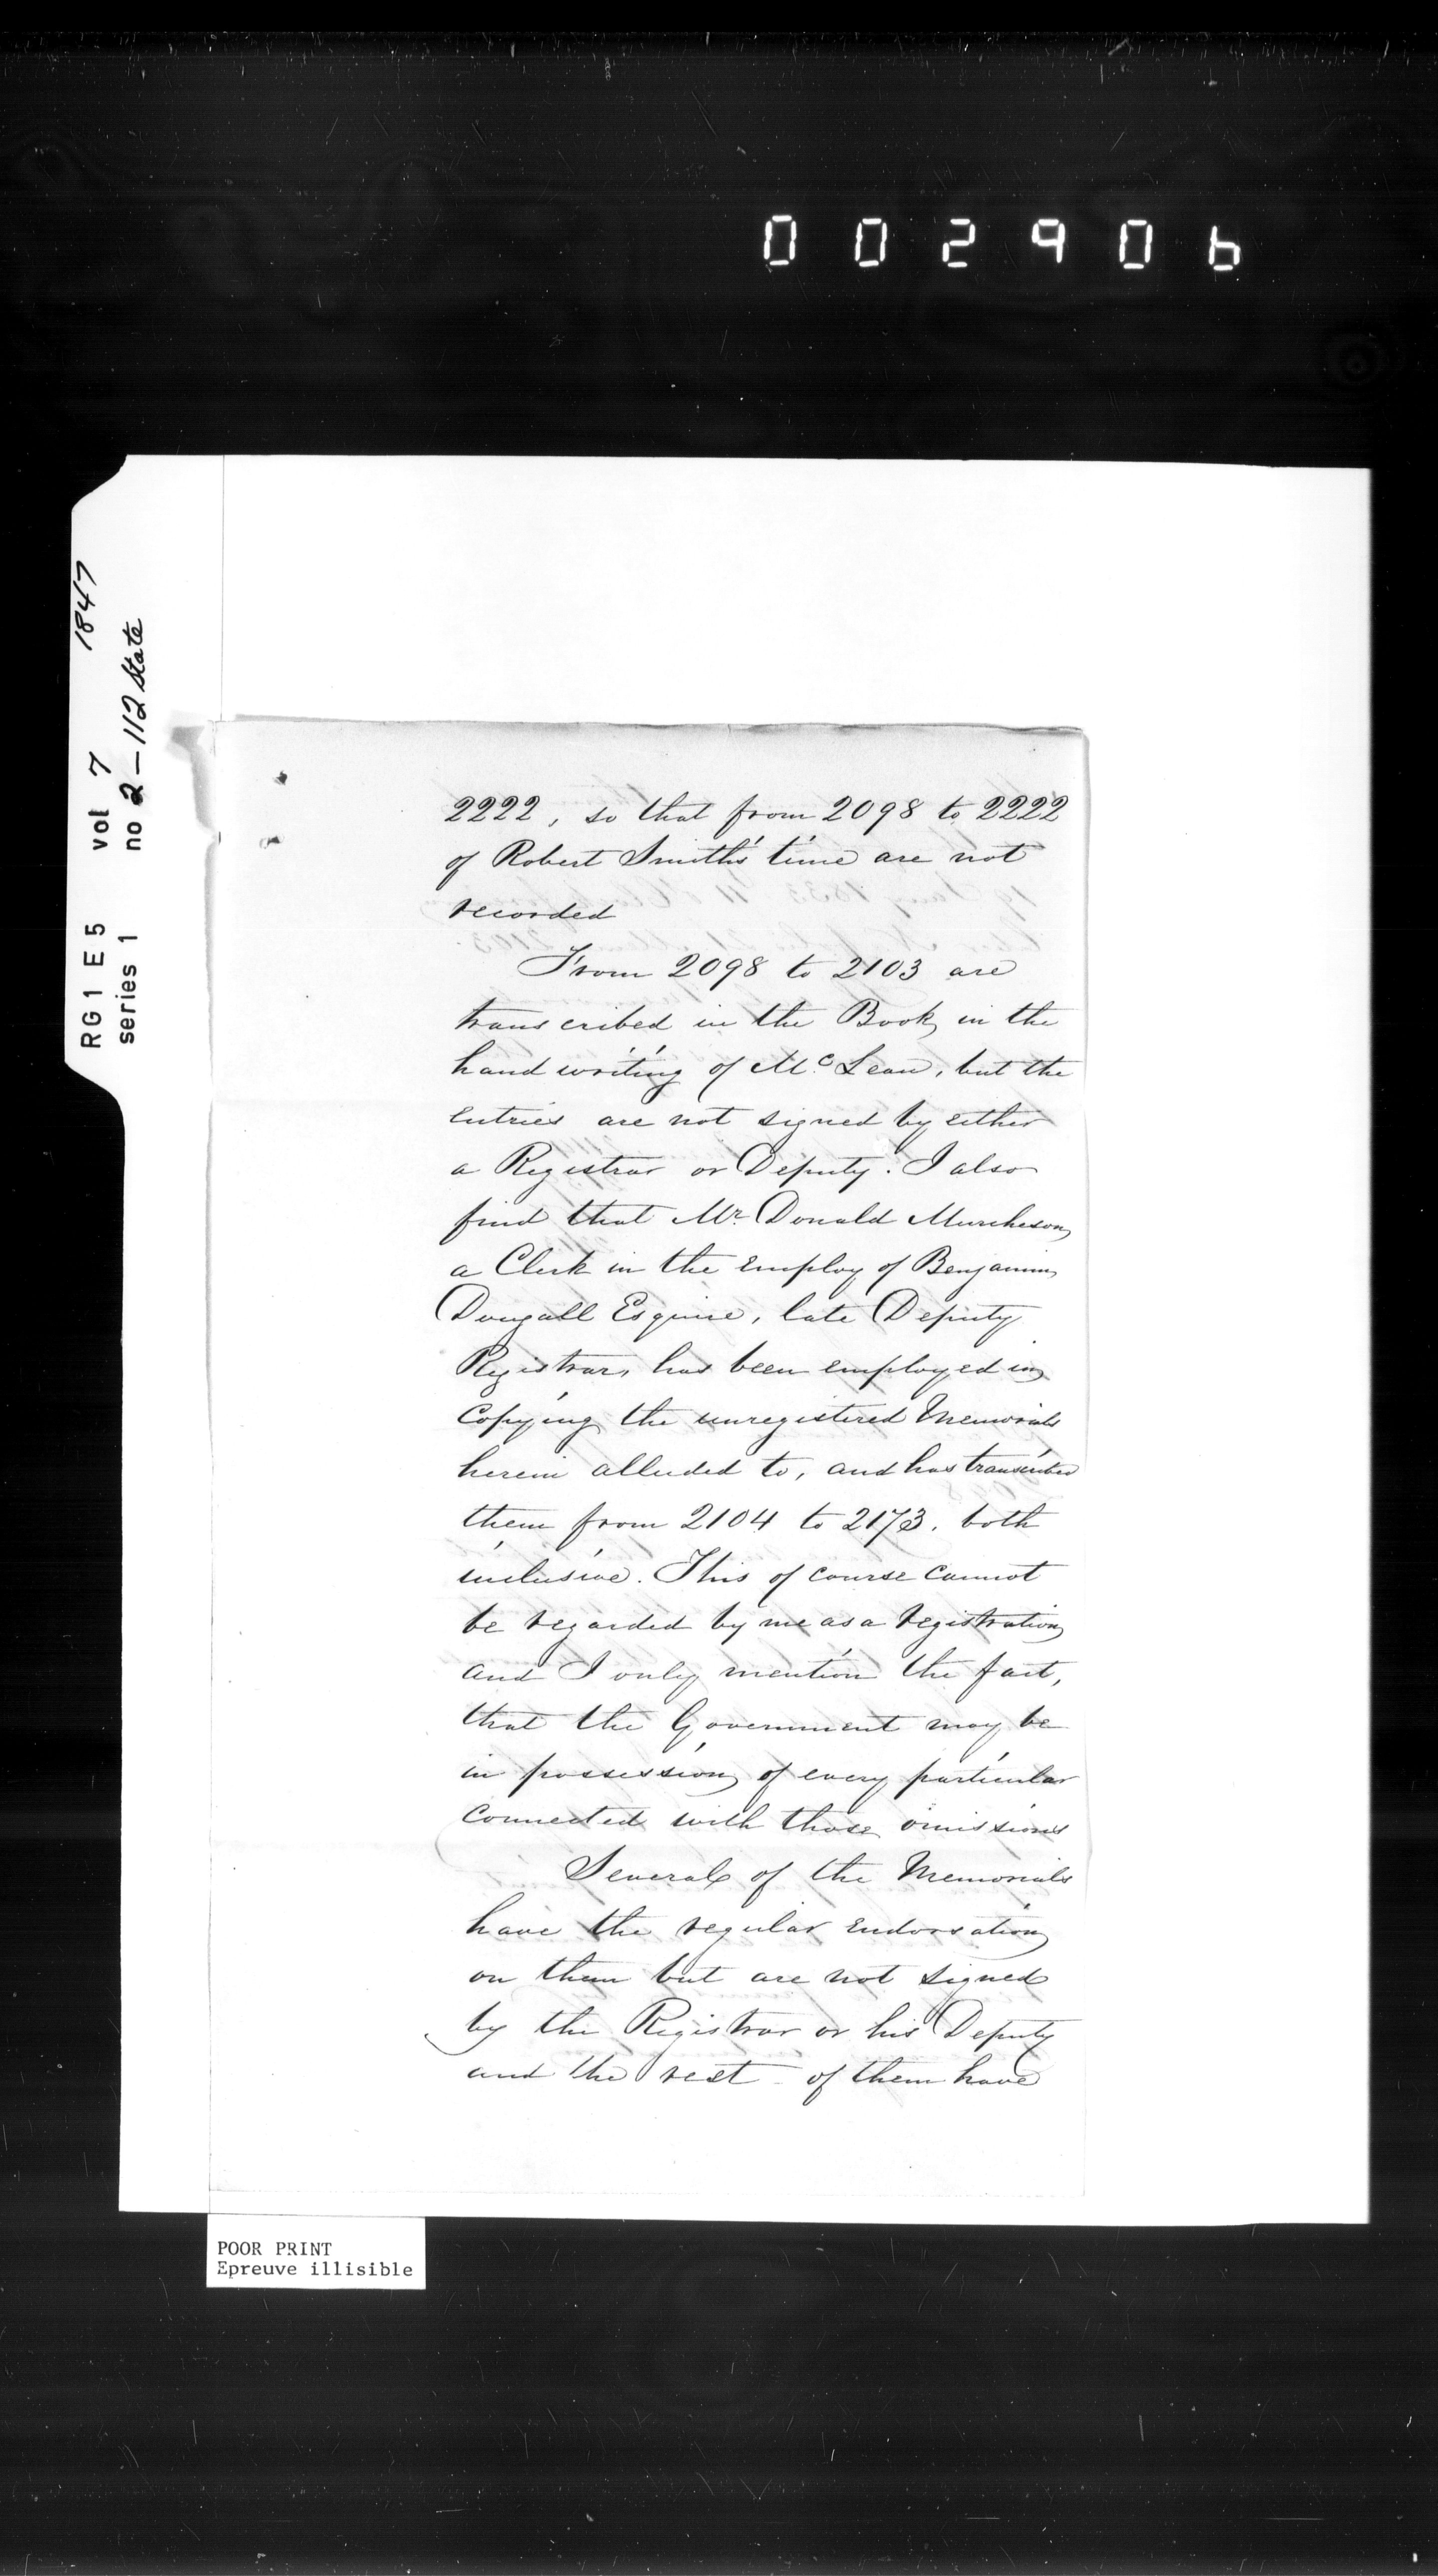 002906
RG1 E5 vol 7 1847
series 1 no 2-112 State
2222, so that from 2098 to 2222
of Robert Smith's time are not
recorded
From 2098 to 2103 are
transcribed in the Book, in the
hand writing of Mc Lean, but the
entries are not signed by either
a Registrar or Deputy. I also
find that Mr. Donald Murcheson,
a Clerk in the employ of Benjamin
Dougall Esquire, late Deputy
Registrar, has been employed in
Copying the unregistered Memorials
herein alluded to, and has transcribed
them from 2104 to 2173, both
inclusive. This of course cannot
be regarded by me as a registration,
and I only mention the fact,
that the Government may be
in possession of every particular
connected with those omissions
Several of the Memorials
have the regular endorsation
on them but are not signed
by the Registrar or his Deputy
and the rest of them have
POOR PRINT
Epreuve illisible